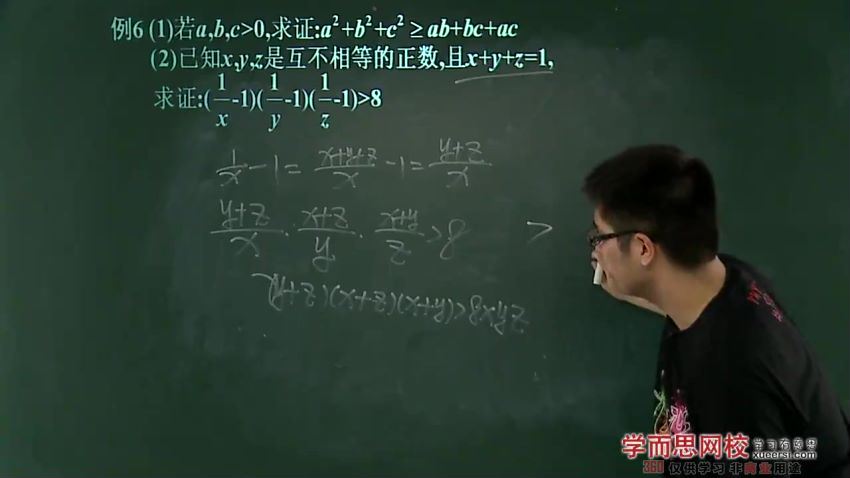 例6 (1)若a,b,c>0,求证:a²+b²+c² ≥ ab+bc+ac
(2)已知x,y,z是互不相等的正数,且x+y+z=1,
求证:(1/x-1)(1/y-1)(1/z-1)>8
1/x-1=x+y+z/x-1=y+z/x
y+z/x·x+z/y·x+y/z>8 >
(y+z)(x+z)(x+y)>8xyz
学而思网校 学习有意思
xueersi.com
360 仅供学习 非商业用途